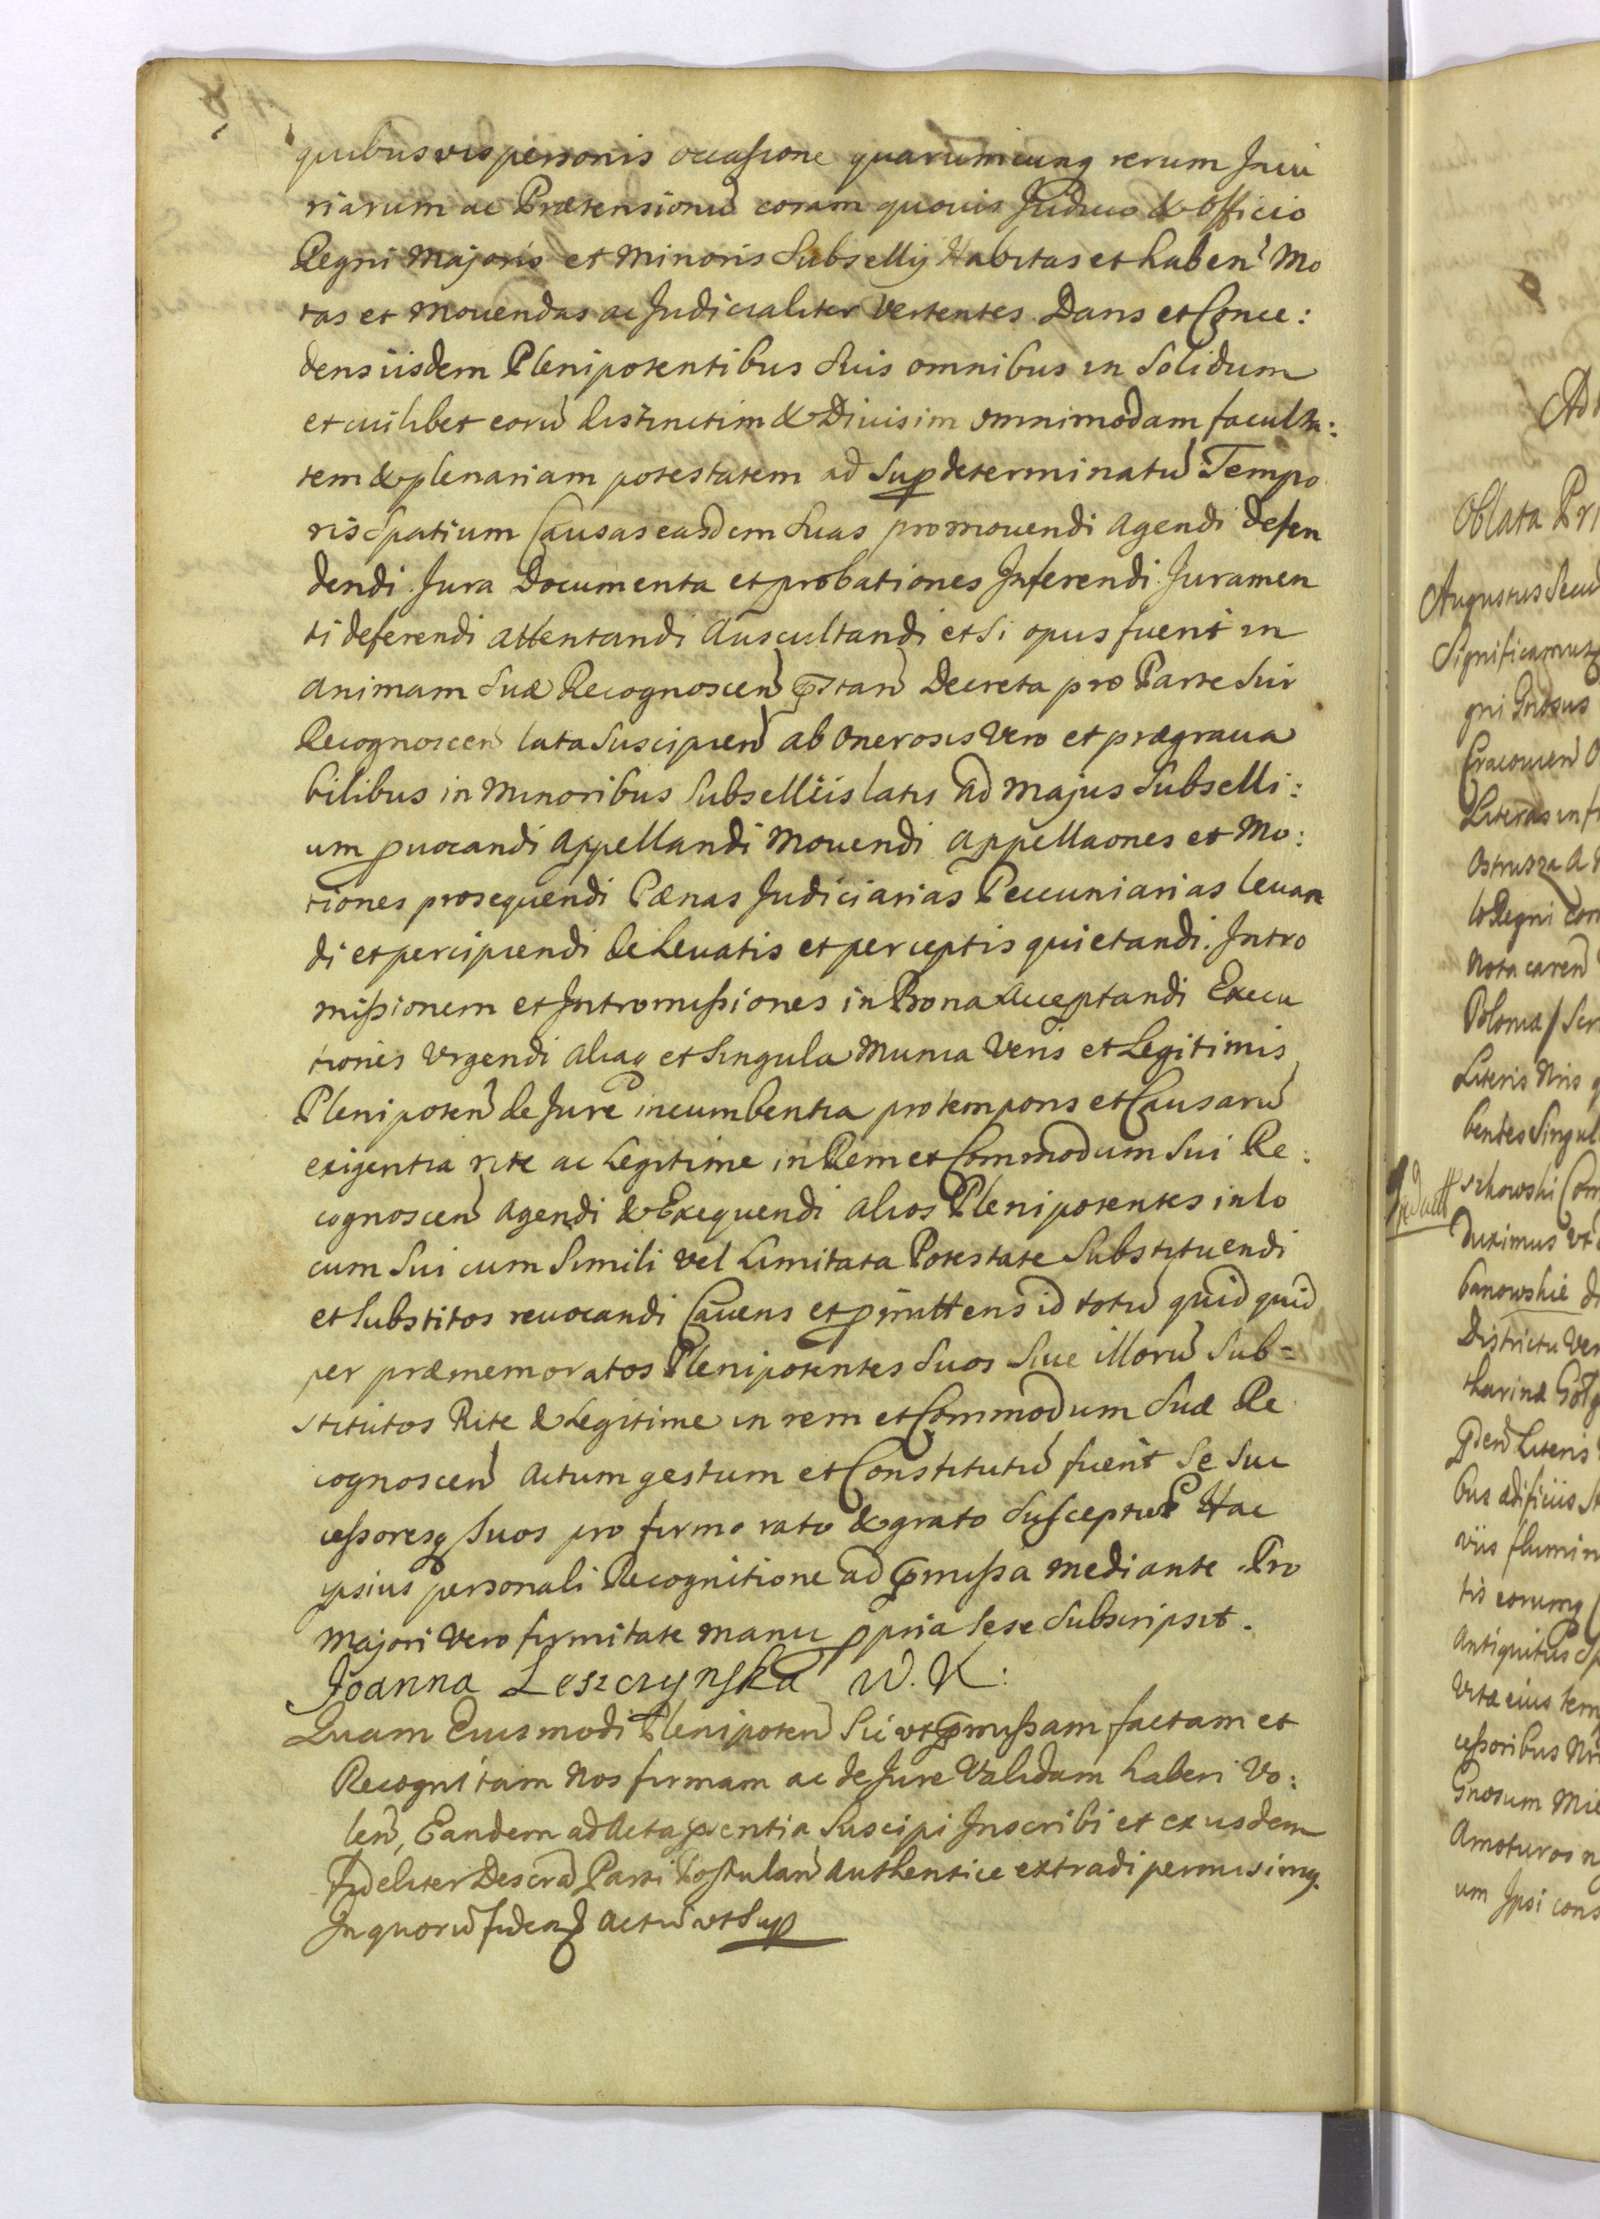 quibusvis personis occasione quarumcunq rerum Iniu
riarum ac Prætensionũ coram quouis Judicio & Officio
Regni Majoris et Minoris Subsellij Habitas et haben̄ Mo
tas et Mouendas ac Judicialiter Vertentes Dans et Conce:
dens iisdem Plenipotentibus Suis omnibus in Solidum
et cuilibet eorũ distinctim & Diuisim omnimodam faculta:
tem & plenariam potestatem ad Sup determinatũ Tempo
ris Spatium Causas easdem Suas promouendi Agendi defen
dendi Jura Documenta et probationes Inferendi Juramen
ti deferendi attentandi Auscultandi et Si opus fuerit in
animam Suæ Recognoscen̄ p̄stan̄ Decreta pro Parte Sui
Recognoscen̄ lata Suscipien̄ ab Onerosis Vero et prægraua
bilibus in Minoribus Subselliis latis ad Majus Subselli:
um ꝓuocandi Appellandi Mouendi appellaones et Mo:
tiones prosequendi Pœnas Judiciarias Peccuniarias leuan
di et percipiendi de Leuatis et perceptis quietandi. Intro
missionem et Intromissiones in Bona Acceptandi Execu
tiones Vrgendi aliaq et Singula Munia Veris et Legitimis
Plenipoten̄ de Jure incumbentia pro temporis et Causarũ
exigentia rite ac Legitime in Rem et Commodum Sui Re:
cognoscen̄ Agendi & Exequendi alios Plenipotentes in lo
cum Sui cum Simili vel Limitata Potestate Substituendi
et Substitos reuocandi Cauens et ꝓmittens id totũ quid quid
per præmemoratos Plenipotentes Suos Siue illorũ Sub=
stitutos Rite & Legitime in rem et Commodum Suæ Re
cognoscen̄ Actum gestum et Constitutũ fuerit Se Suc
cessoresq Suos pro firmo rato & grato Suscepturũ Hac
ipsius personali Recognitione ad p̄missa mediante. Pro
Majori Vero firmitate manu ꝓpria Sese Subscripsit.
Joanna Leszczynska W. K:
Quam Eiusmodi Plenipoten̄ Sic vt p̄missam factam et
Recognitam Nos firmam ac de Jure Validam haberi Vo:
len̄, Eandem ad Acta p̄sentia Suscipi Inscribi et ex iisdem
fideliter Descrā Parti Postulan̄ Authentice extradi permisimq.
In quorũ fidem Actũ vt Sup
Ad
Oblata Pri
Augustus Secu
Significamus
gni Gnosus
Cracouien̄ O
Literas in fr
Ostrusza A
Regni Con
Nota caren̄
Polonia / Scr
Literis Nris
bentes Singul
szkowski Com
Duximus Vt
banowskie d
Districtu Ven
tharinæ
Literis
bus ædificiis St
viis flumin
tis eorumq
Antiquitus Sp
Vitæ eius tem
cessoribus Nri
Gnosum Mie
Amoturos n
um Ipsi cons